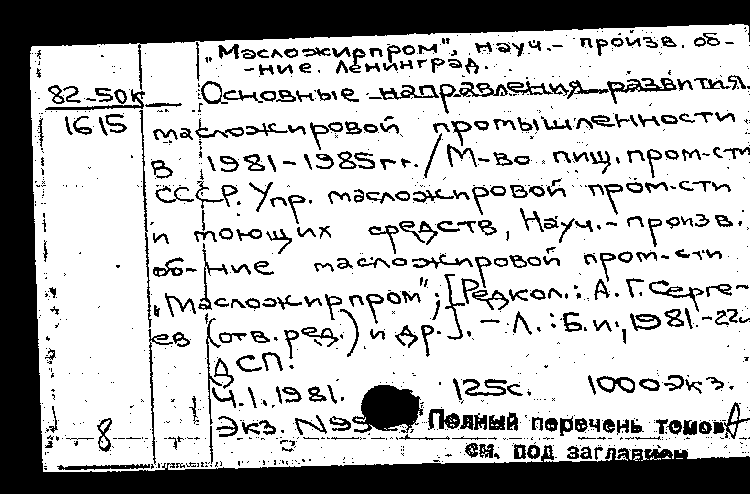 "Масложирпром", науч.- произв. об-
-ние. Ленинград.
82-50к Основные направления развития
1615 масложировой промышленности
в 1981-1985гг. / М-во пищ. пром-сти
СССР. Упр. масложировой пром-сти
и моющих средств, Науч.-произв.
об-ние масложировой пром-сти
"Масложирпром"; [Редкол.: А.Г. Серге-
ев (отв. ред.) и др.]. - Л. : Б.и., 1981.-22см
ДСП.
Ч.1. 1981. 125с. 1000экз.
8 Экз. N99 Полный перечень томов
см. под заглавием